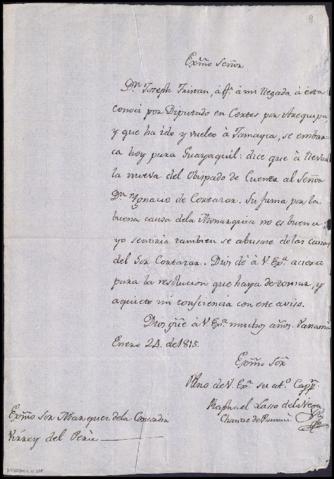 Exmo Señor
Dn. Joseph Tristan, aqn. à mi llegada à esta
conocí por Diputado en Cortes por Arequipa
y que ha ido y vuelto à Jamayca, se embar-
ca hoy para Guayaquil: dice que à llevar
la nueva del Obispado de Cuenca al Señor
Dn. Ygnacio de Cortazar. Su fama por la
buena causa de la Monarquia no es buena
yo sentiria tambien se abusase de las
del Sor Cortazar. Dios dé à V Exa. acierto
para la resolucion que haya de tomar, y
aquiete mi conferencia con este aviso.
Dios gue à V Exa. muchos años. Panamá
Enero 24. de 1815.
Exmo Sor
de V. Exa. su ato. Capn.
Raphael Lasso de la Vega
Chantre de Panamá
Exmo Sor Marques de la Concordia
Virrey del Perú